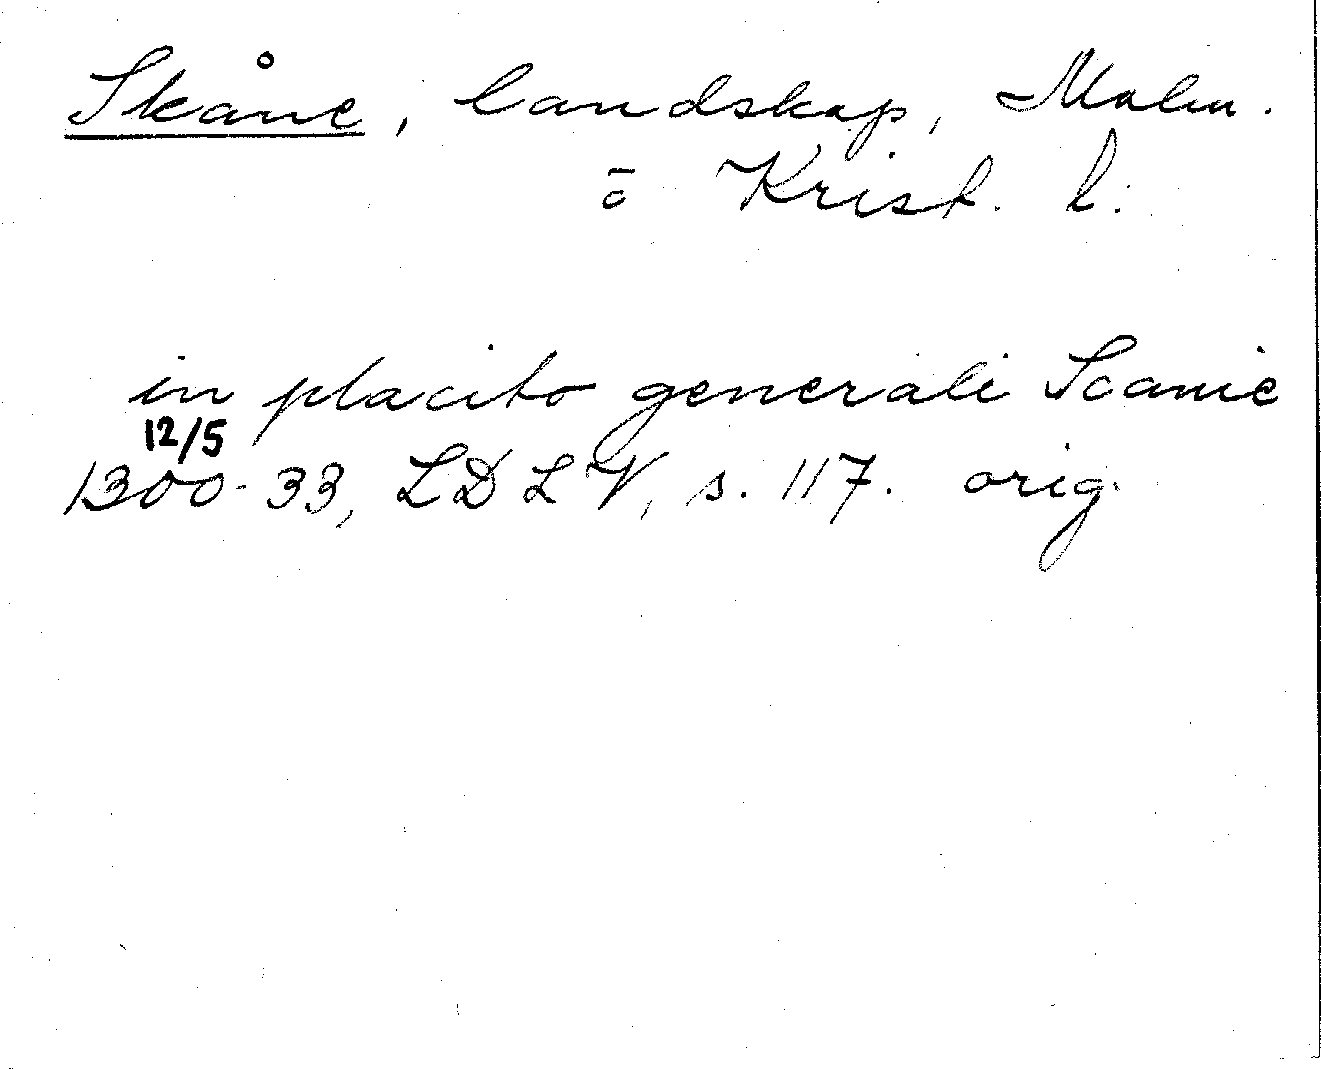 Skåne, landskap, Malm.
o Krist. l.
in placito generali Scanie
12/5
1300-33, LDLV, s. 117. orig.